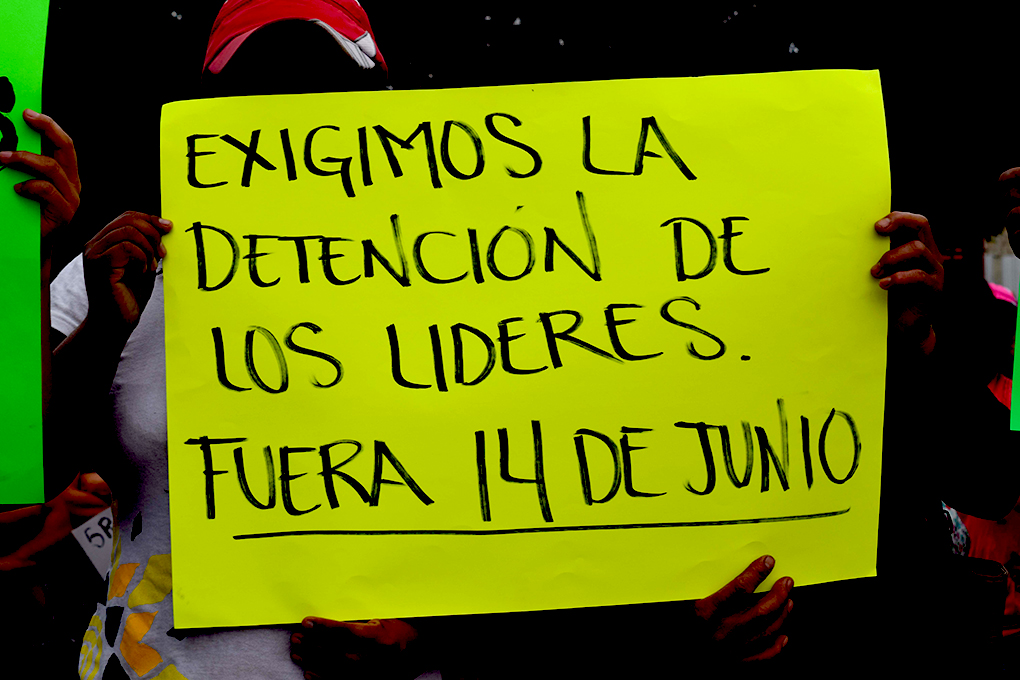 EXIGIMOS LA
DETENCIÓN DE
LOS LIDERES.
FUERA 14 DE JUNIO